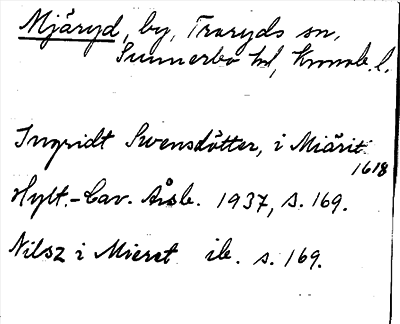 Mjäryd, by, Traryds sn,
Sunnerbo hd, Kronob. l.
Ingridt Swensdåtter, i Miärit.
1618
Hylt.-Cav. Årsb. 1937, s. 169.
Nilsz i Mieret ib. s. 169.